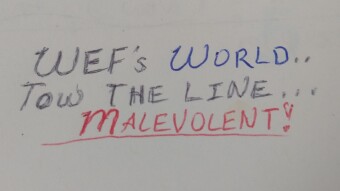 WEF's WORLD..
Tow THE LINE...
MALEVOLENT!